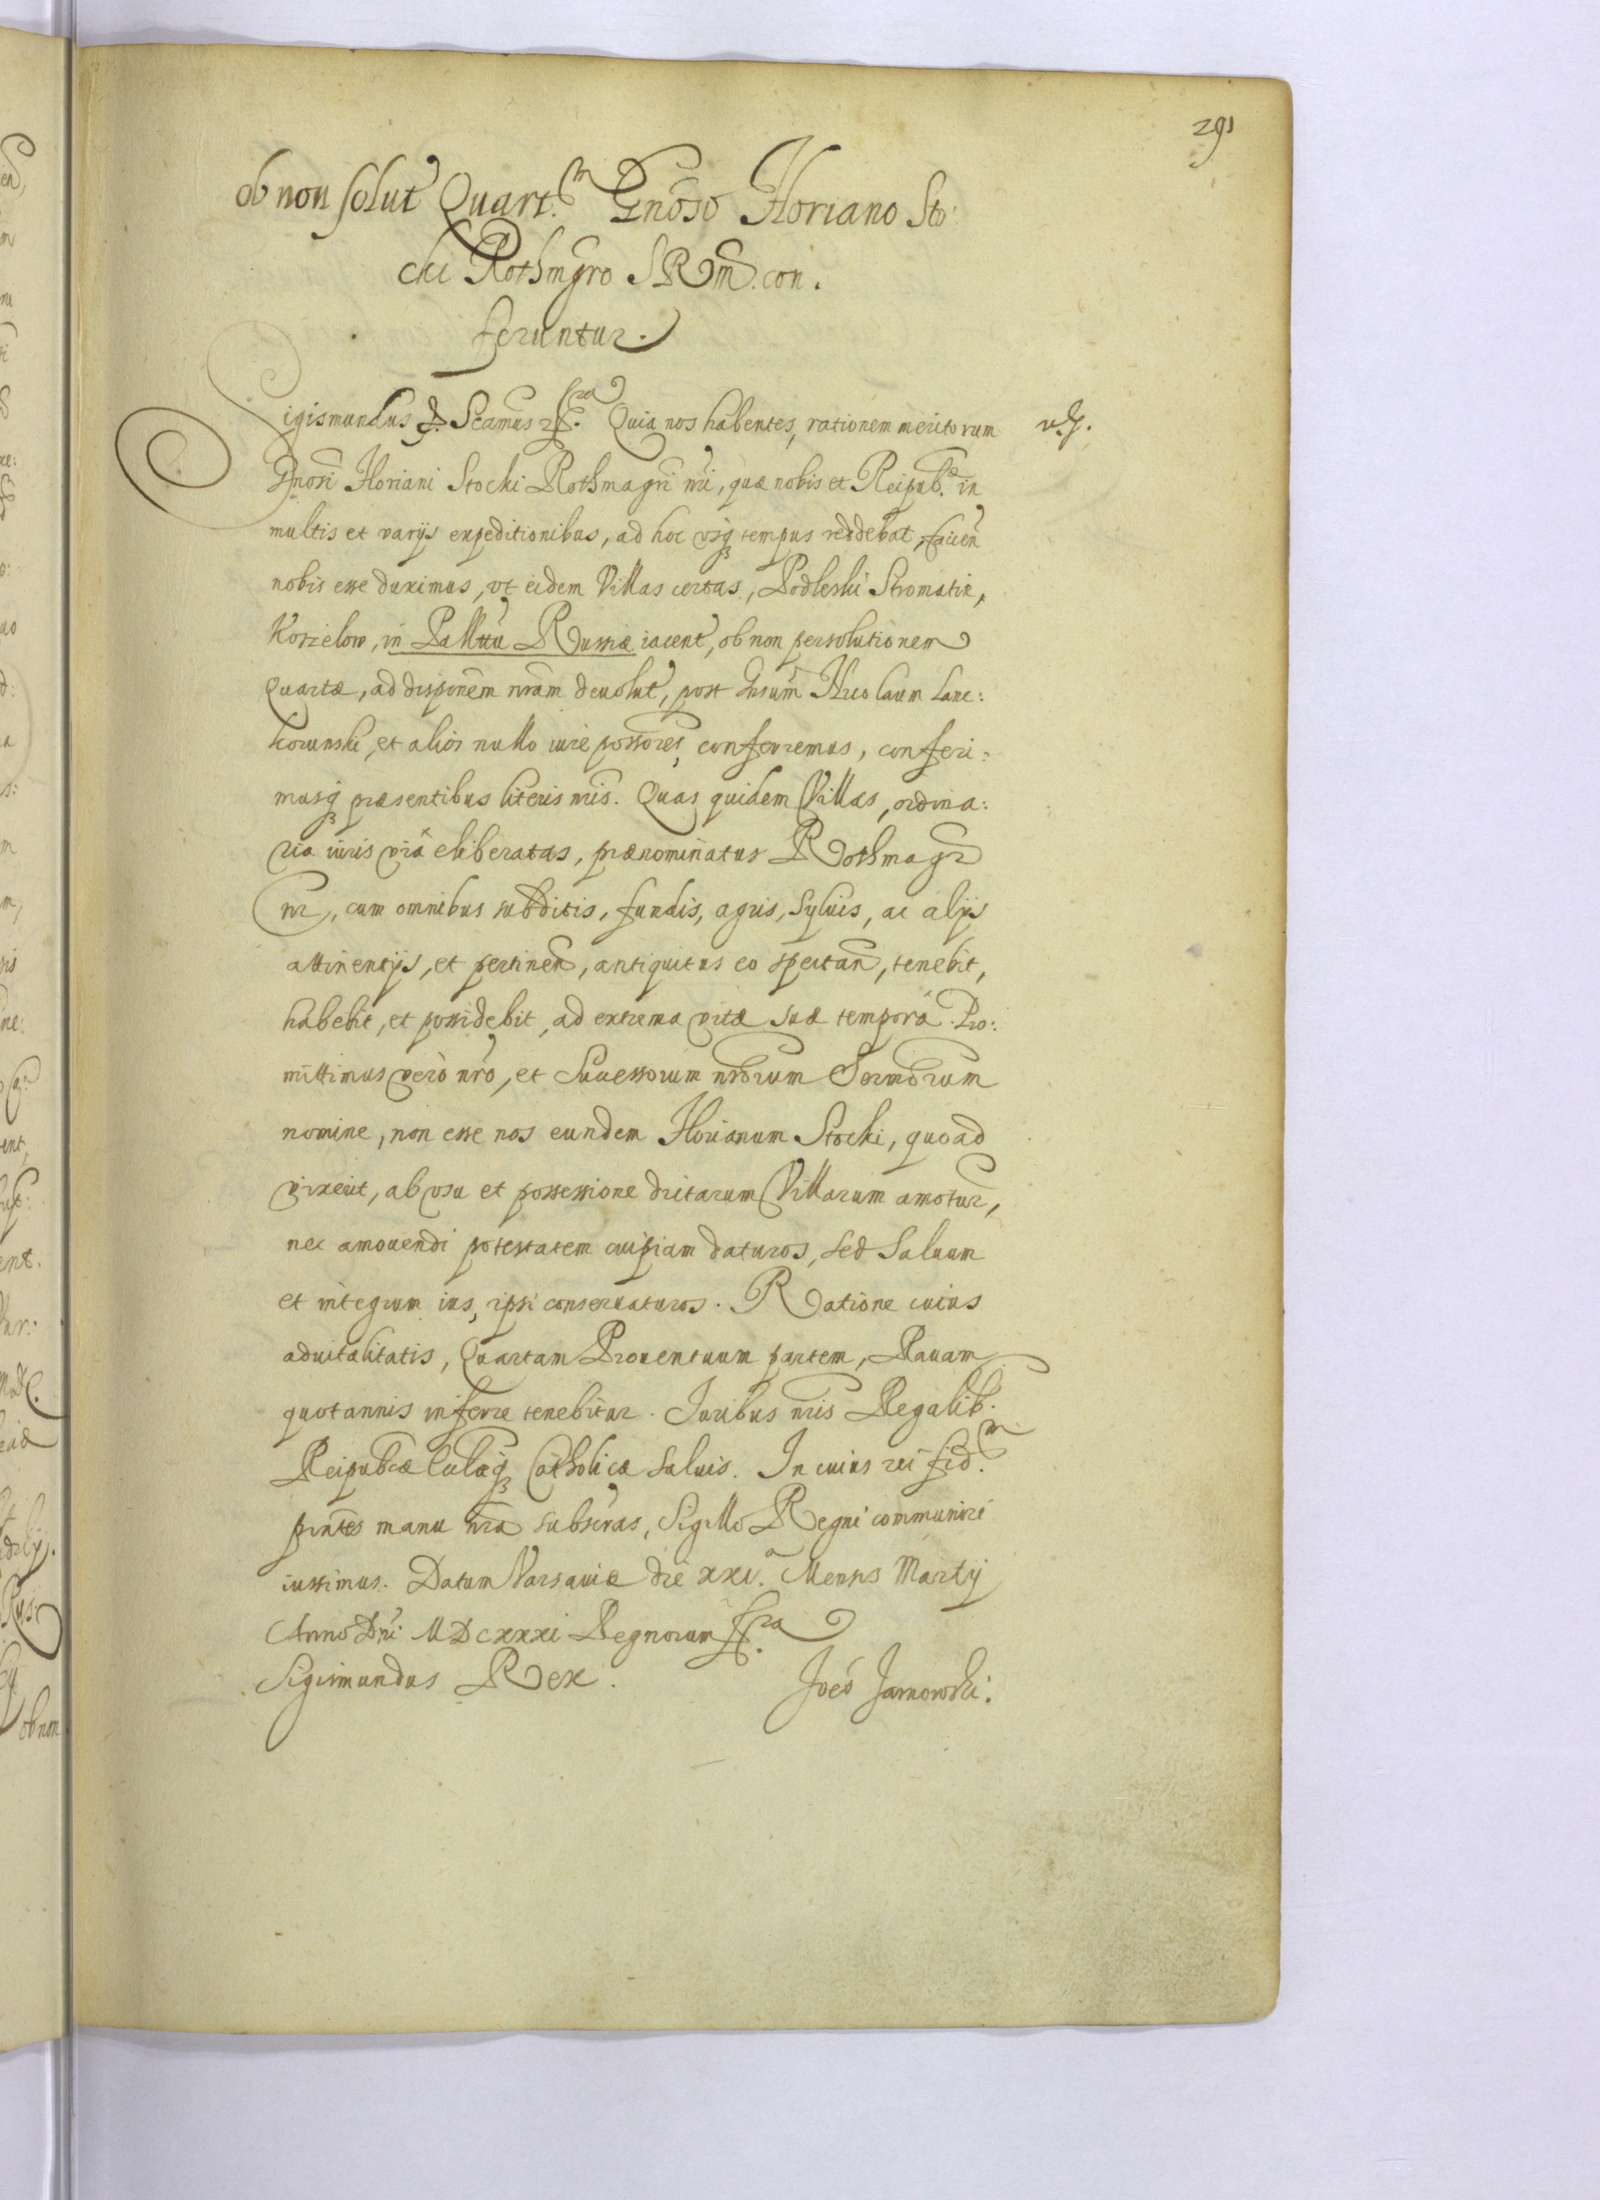 291
ob non solut Quart.m Gnoso Floriano Sto:
cki Rothmgro S R M. con.
feruntur.
Sigismundus Quia nos habentes, rationem meritorum
Gnosi Floriani Stocki Rothmagri nri, quæ nobis et Reipub. in
multis et varijs expeditionibus, ad hoc vsq tempus reddebat,
nobis esse duximus, vt eidem Villas certas, Podleski Stromatin,
Korzelow, in Palttu Russiæ iacent, ob non persolutionem
Quartæ, ad disponem nram deuolut, post Nicolaum Lanc:
korunski, et alios nullo iure possores, conferremus, conferi:
musq præsentibus literis nris. Quas quidem Villas, ordina:
ria iuris viâ eliberatas, prænominatus Rothmagr
nr, cum omnibus subditis, fundis, agris, syluis, ac alijs
attinentijs, et pertinen, antiquitus eo spectan, tenebit,
habebit, et possidebit, ad extrema vitæ suæ tempora. Pro:
mittimus verò nro, et Successorum nrorum Sermorum
nomine, non esse nos eundem Florianum Stocki, quoad
vixerit, ab vsu et possessione dictarum Villarum amotur,
nec amouendi potestatem cuipiam daturos, sed saluum
et integrum ius, ipsi conseruaturos. Ratione cuius
aduitalitatis, Quartam Prouentuum partem, Rauam
quotannis inferre tenebitur. Juribus nris Regalib.
Reipubcæ Ecclæq Catholicæ saluis. In cuius rei fid.m
pntes manu nra subscras, Sigillo Regni communiri
iussimus. Datum Varsauiæ die xxi.a Mensis Martij
Anno Dni. MDCXXXI Regnorum
Sigismundus Rex.